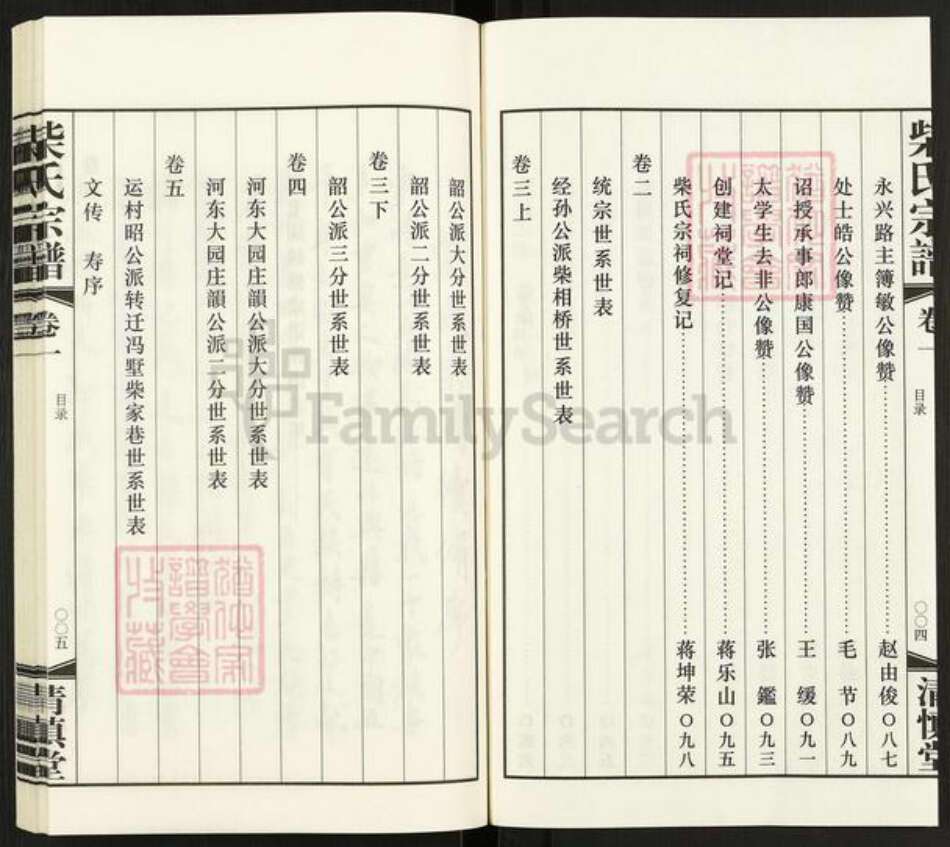 柴氏宗谱 卷一 目录 〇〇四 清慎堂
永兴路主簿敏公像赞……赵由俊〇八七
处士皓公像赞……毛 节〇八九
诏授承事郎康国公像赞……王 缓〇九一
太学生去非公像赞……张 鑑〇九三
创建祠堂记……蒋乐山〇九五
柴氏宗祠修复记……蒋坤荣〇九八
卷二
统宗世系世表
经孙公派柴相桥世系世表
卷三上
韶公派大分世系世表
韶公派二分世系世表
卷三下
韶公派三分世系世表
卷四
河东大园庄韻公派大分世系世表
河东大园庄韻公派二分世系世表
卷五
运村昭公派转迁冯墅柴家巷世系世表
文传 寿序
柴氏宗谱 卷一 目录 〇〇五 清慎堂
FamilySearch